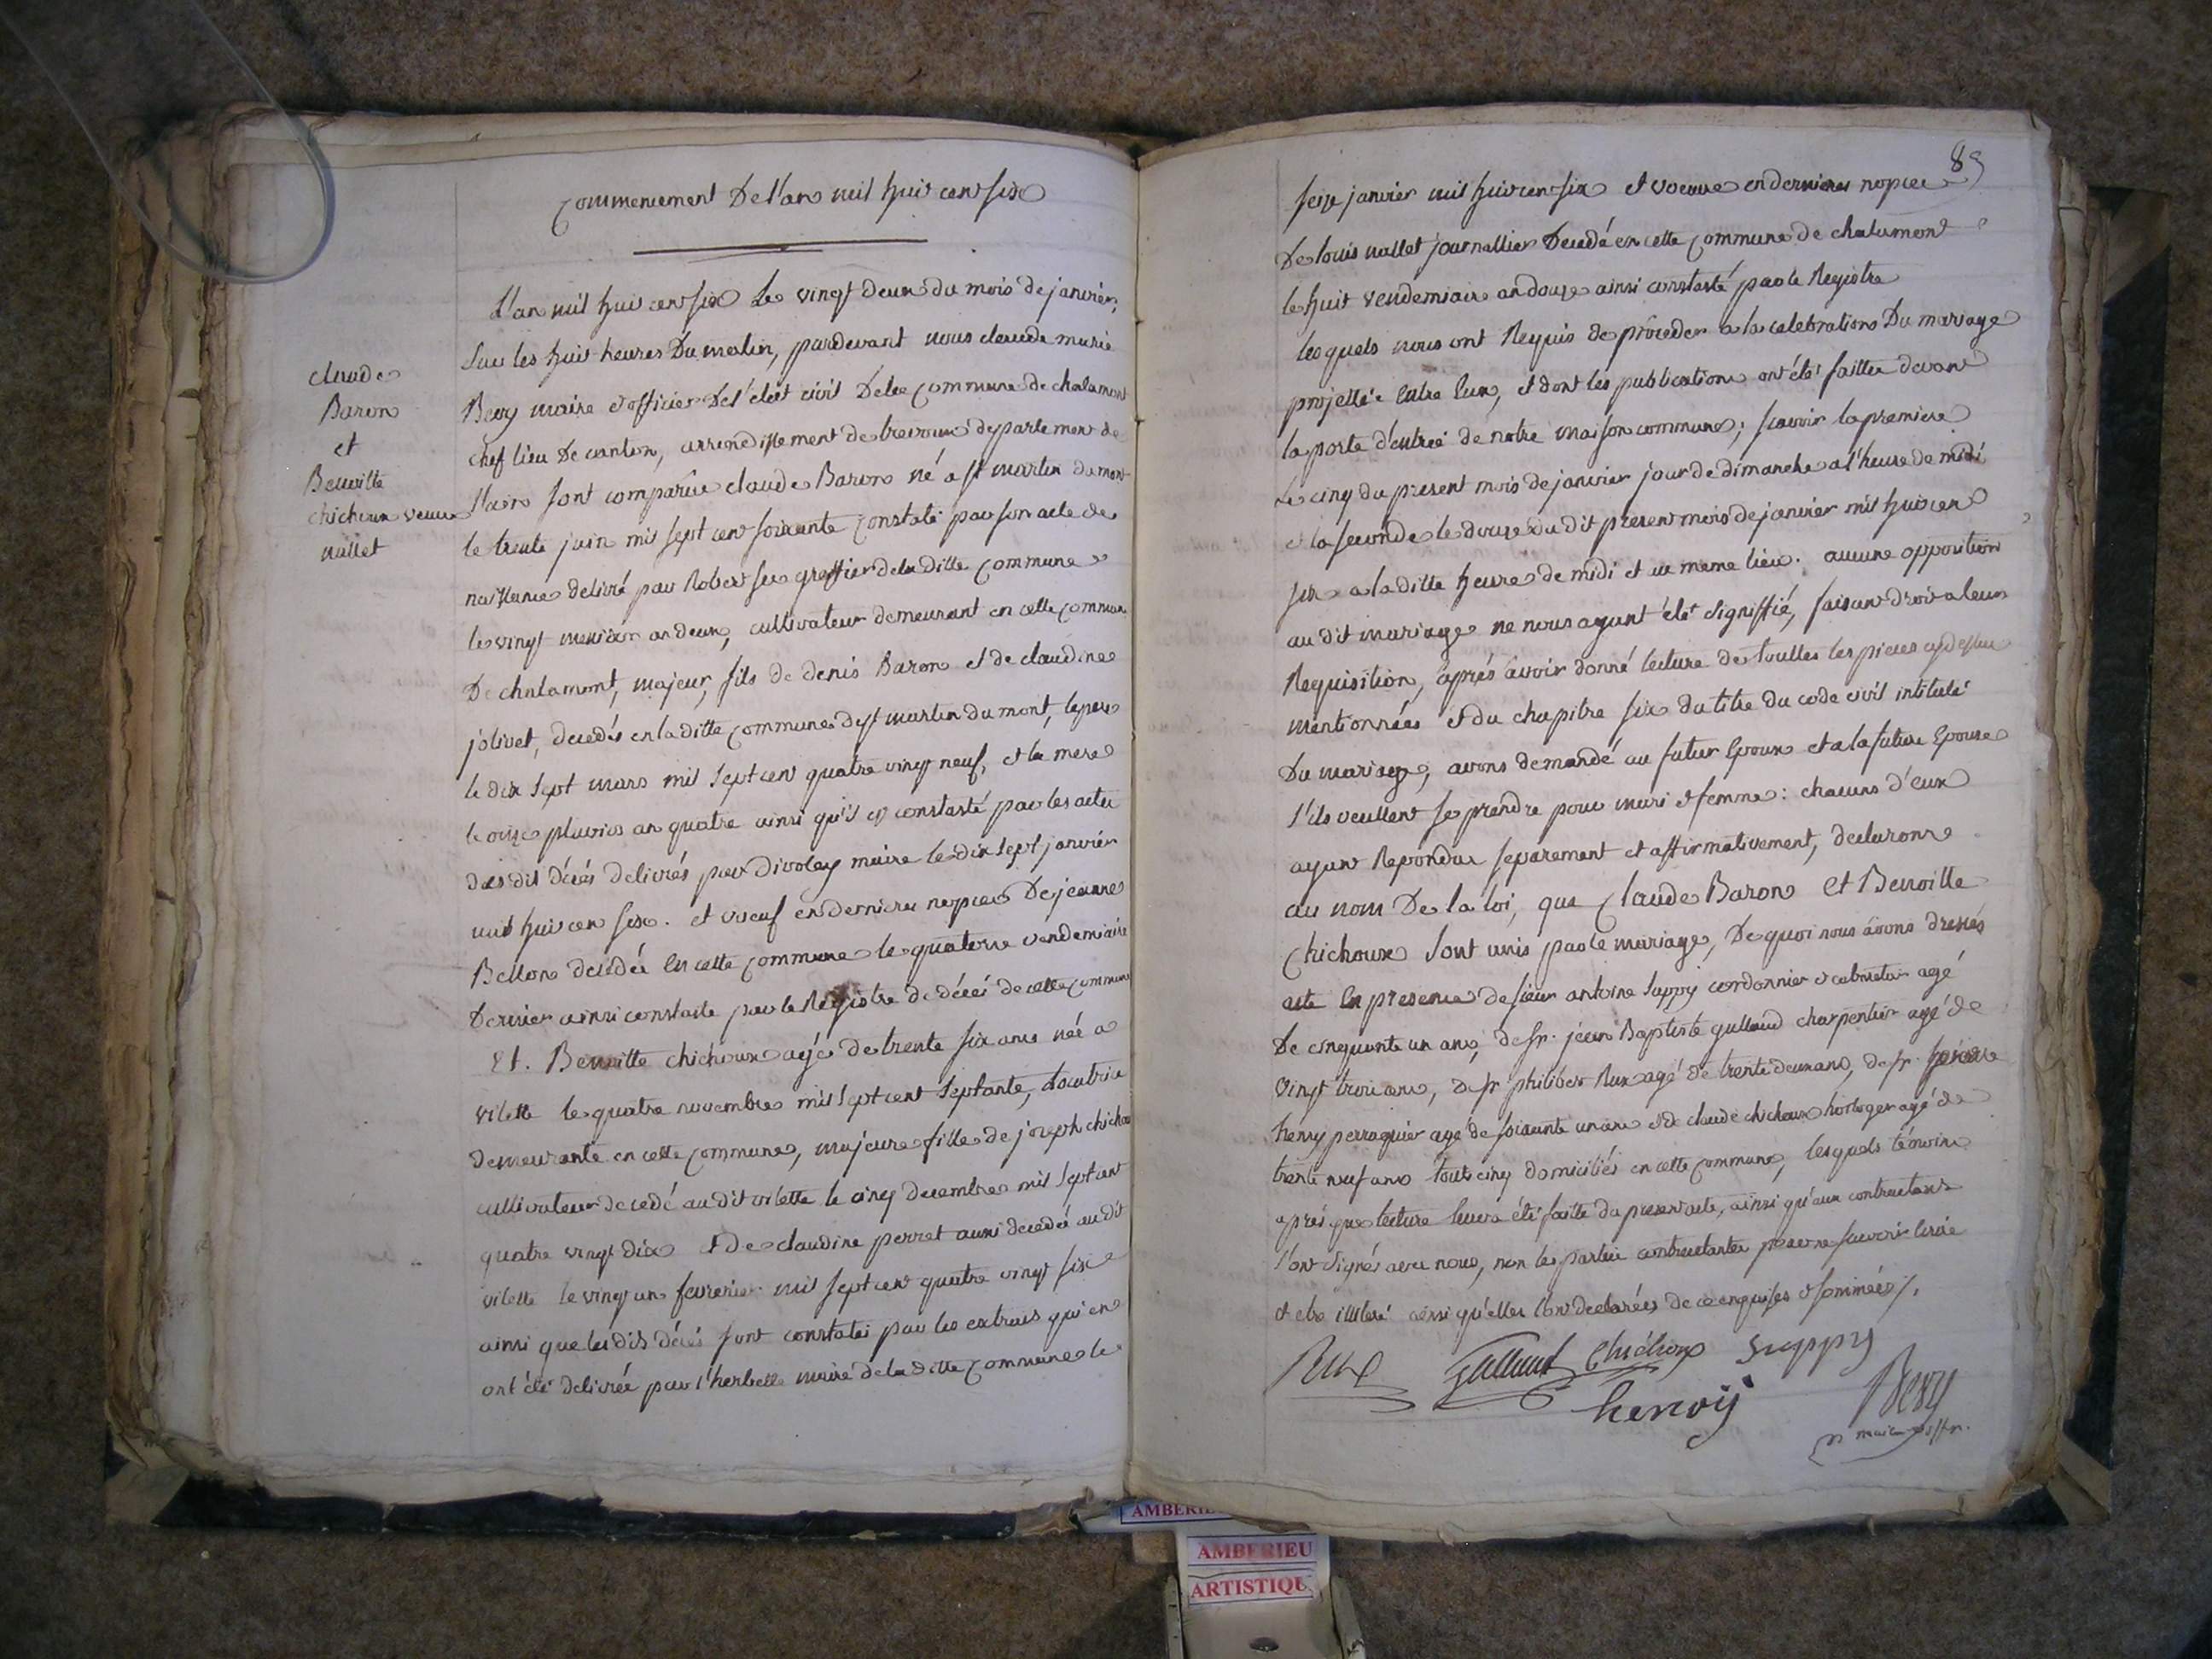 commencement De l'an mil huit cent six
L'an mil huit cent six Le vingt deux du mois de janvier,
sur les huit heures Du matin, pardevant nous claude marie
Bevy maire et officier De l'état civil De la commune de chalamont
chef lieu De canton, arrondissement de trevoux departement de
l'ain sont comparûe claude Baron né a st martin du mont
le trente juin mil sept cent soixante constaté par son acte de
naissance delivré par Robert greffier de la ditte commune
le vingt messidor an deux, cultivateur demeurant en cette commune
De chalamont, majeur, fils de denis Baron et de claudine
jolivet, decedés en la ditte commune de st martin du mont, le pere
le dix sept mars mil sept cent quatre vingt neuf, et la mere
le onze pluvios an quatre ainsi qu'il est constasté par les actes
des dit décés delivrés par Divoley maire le dix sept janvier
mil huit cen six. et voeuf en dernieres nopces De jeanne
Bellon decedée en cette commune le quatorze vendemiaire
Dernier ainsi constasté par le Registre de décés de cette commune
Et. Benoitte chichoux agée de trente six ans née a
vilette le quatre novembre mil sept cent septante,
demeurante en cette commune, majeure fille de joseph chichoux
cultivateur decedé au dit vilette le cinq decembre mil sept cent
quatre vingt dix et de claudine perret aussi decedée au dit
vilette le vingt un fevrier mil sept cent quatre vingt six
ainsi que les dits décés sont constatés par les extraits qui en
ont été delivrée par l'herbette maire de la ditte commune le
claude
Baron
et
Benoitte
chichoux veuve
mallet
85
seize janvier mil huit cen six et voeuve en dernieres nopces
De louis mallet journallier Decedé en cette commune de chalamont
le huit vendemiaire an douze ainsi constasté par le Registre
lesquels nous ont Requis de procéder a la celebration Du mariage
projetté entre Eux, et dont les publications ont été faittes devant
la porte d'entreé de notre maison commune; scavoir la premiere
Le cinq du present mois de janvier jour de dimanche a l'heure de midi
et la seconde le douze du dit present mois de janvier mil huit cen
six a la ditte heure de midi et au meme lieu. aucune opposition
au dit mariage ne nous ayant été signiffié, faisant droit a leur
Requisition, aprés avoir donné lecture de touttes les pieces cy dessus
mentionnées et du chapitre six du titre du code civil intitulé
Du mariage, avons demandé au futur Epoux et a la future Epouse
s'ils veullent se prendre pour mari et femme: chacuns d'eux
ayant Repondu separement et affirmativement, declarons
au nom De la loi, que Claude Baron et Benoitte
Chichoux sont unis par le mariage, De quoi nous avons dressés
acte En presence de sieur antoine Suppy cordonnier et cabaretier agé
De cinquante un ans, de sr. jean Baptiste gullaud charpentier agé de
vingt trois ans, de sr philibert Rux agé de trente deux ans, de sr. pierre
henry perruquier agé de soixante un ans et de claude chichoux horloger agé de
trente neuf ans touts cinq domiciliés en cette commune, lesquels témoins
aprés que lecture leur a été faitte du present acte, ainsi qu'aux contractans
l'ont signés avec nous, non les parties contractantes pour ne scavoir
et etre illiteré ainsi qu'elles l'ont declarées de ce enquises et sommées /.
Rux Gullaud Chichoux Suppy
henry Bevy
maire
AMBERIEU
AMBERIEU
ARTISTIQU